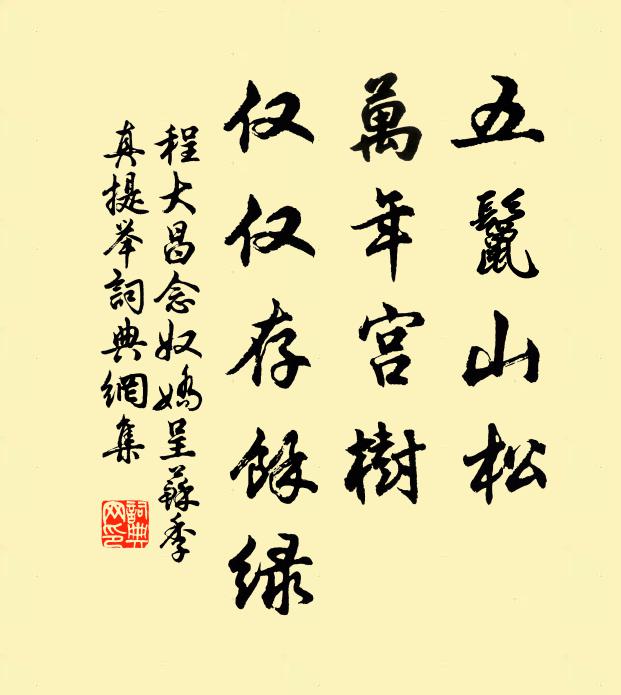 五鬣山松
萬年宫樹
仅仅存餘緑
程大昌念奴嬌呈蘇季
真提举詞典網集
詞典
网印